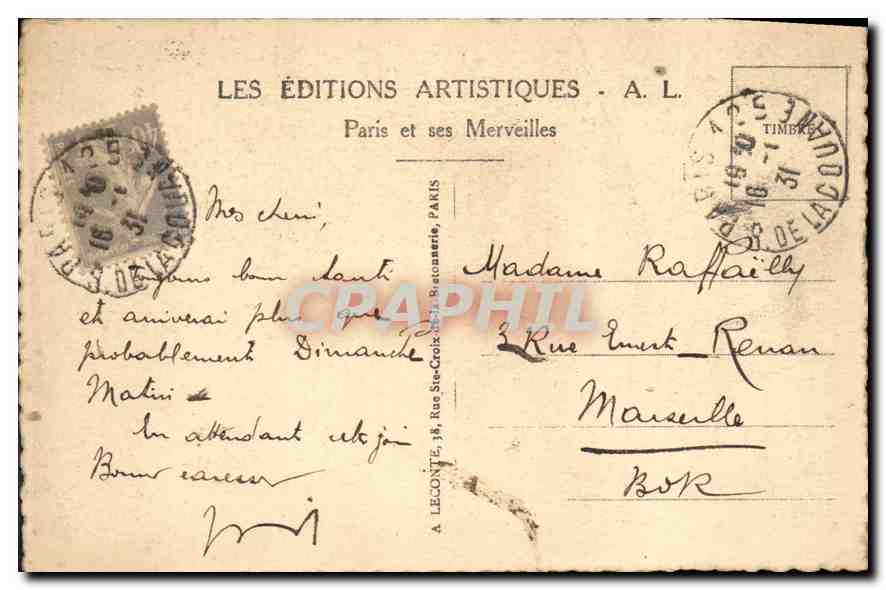 LES ÉDITIONS ARTISTIQUES - A. L.
Paris et ses Merveilles
TIMBRE
PARIS 125
19 30
16 -1
31
R. DE LACOUR
PARIS 125
19 30
16 -1
31
R. DE LA
Mes chéri,
Toujours bonne santé
et arriverai plus que
probablement Dimanche
Matin
En attendant joie
Bonnes caresses
A LECONTE, 38, Rue Ste-Croix-de-la-Bretonnerie, PARIS
Madame Raffaëlly
3 Rue Ernest Renan
Marseille
BdR
CPAPHIL